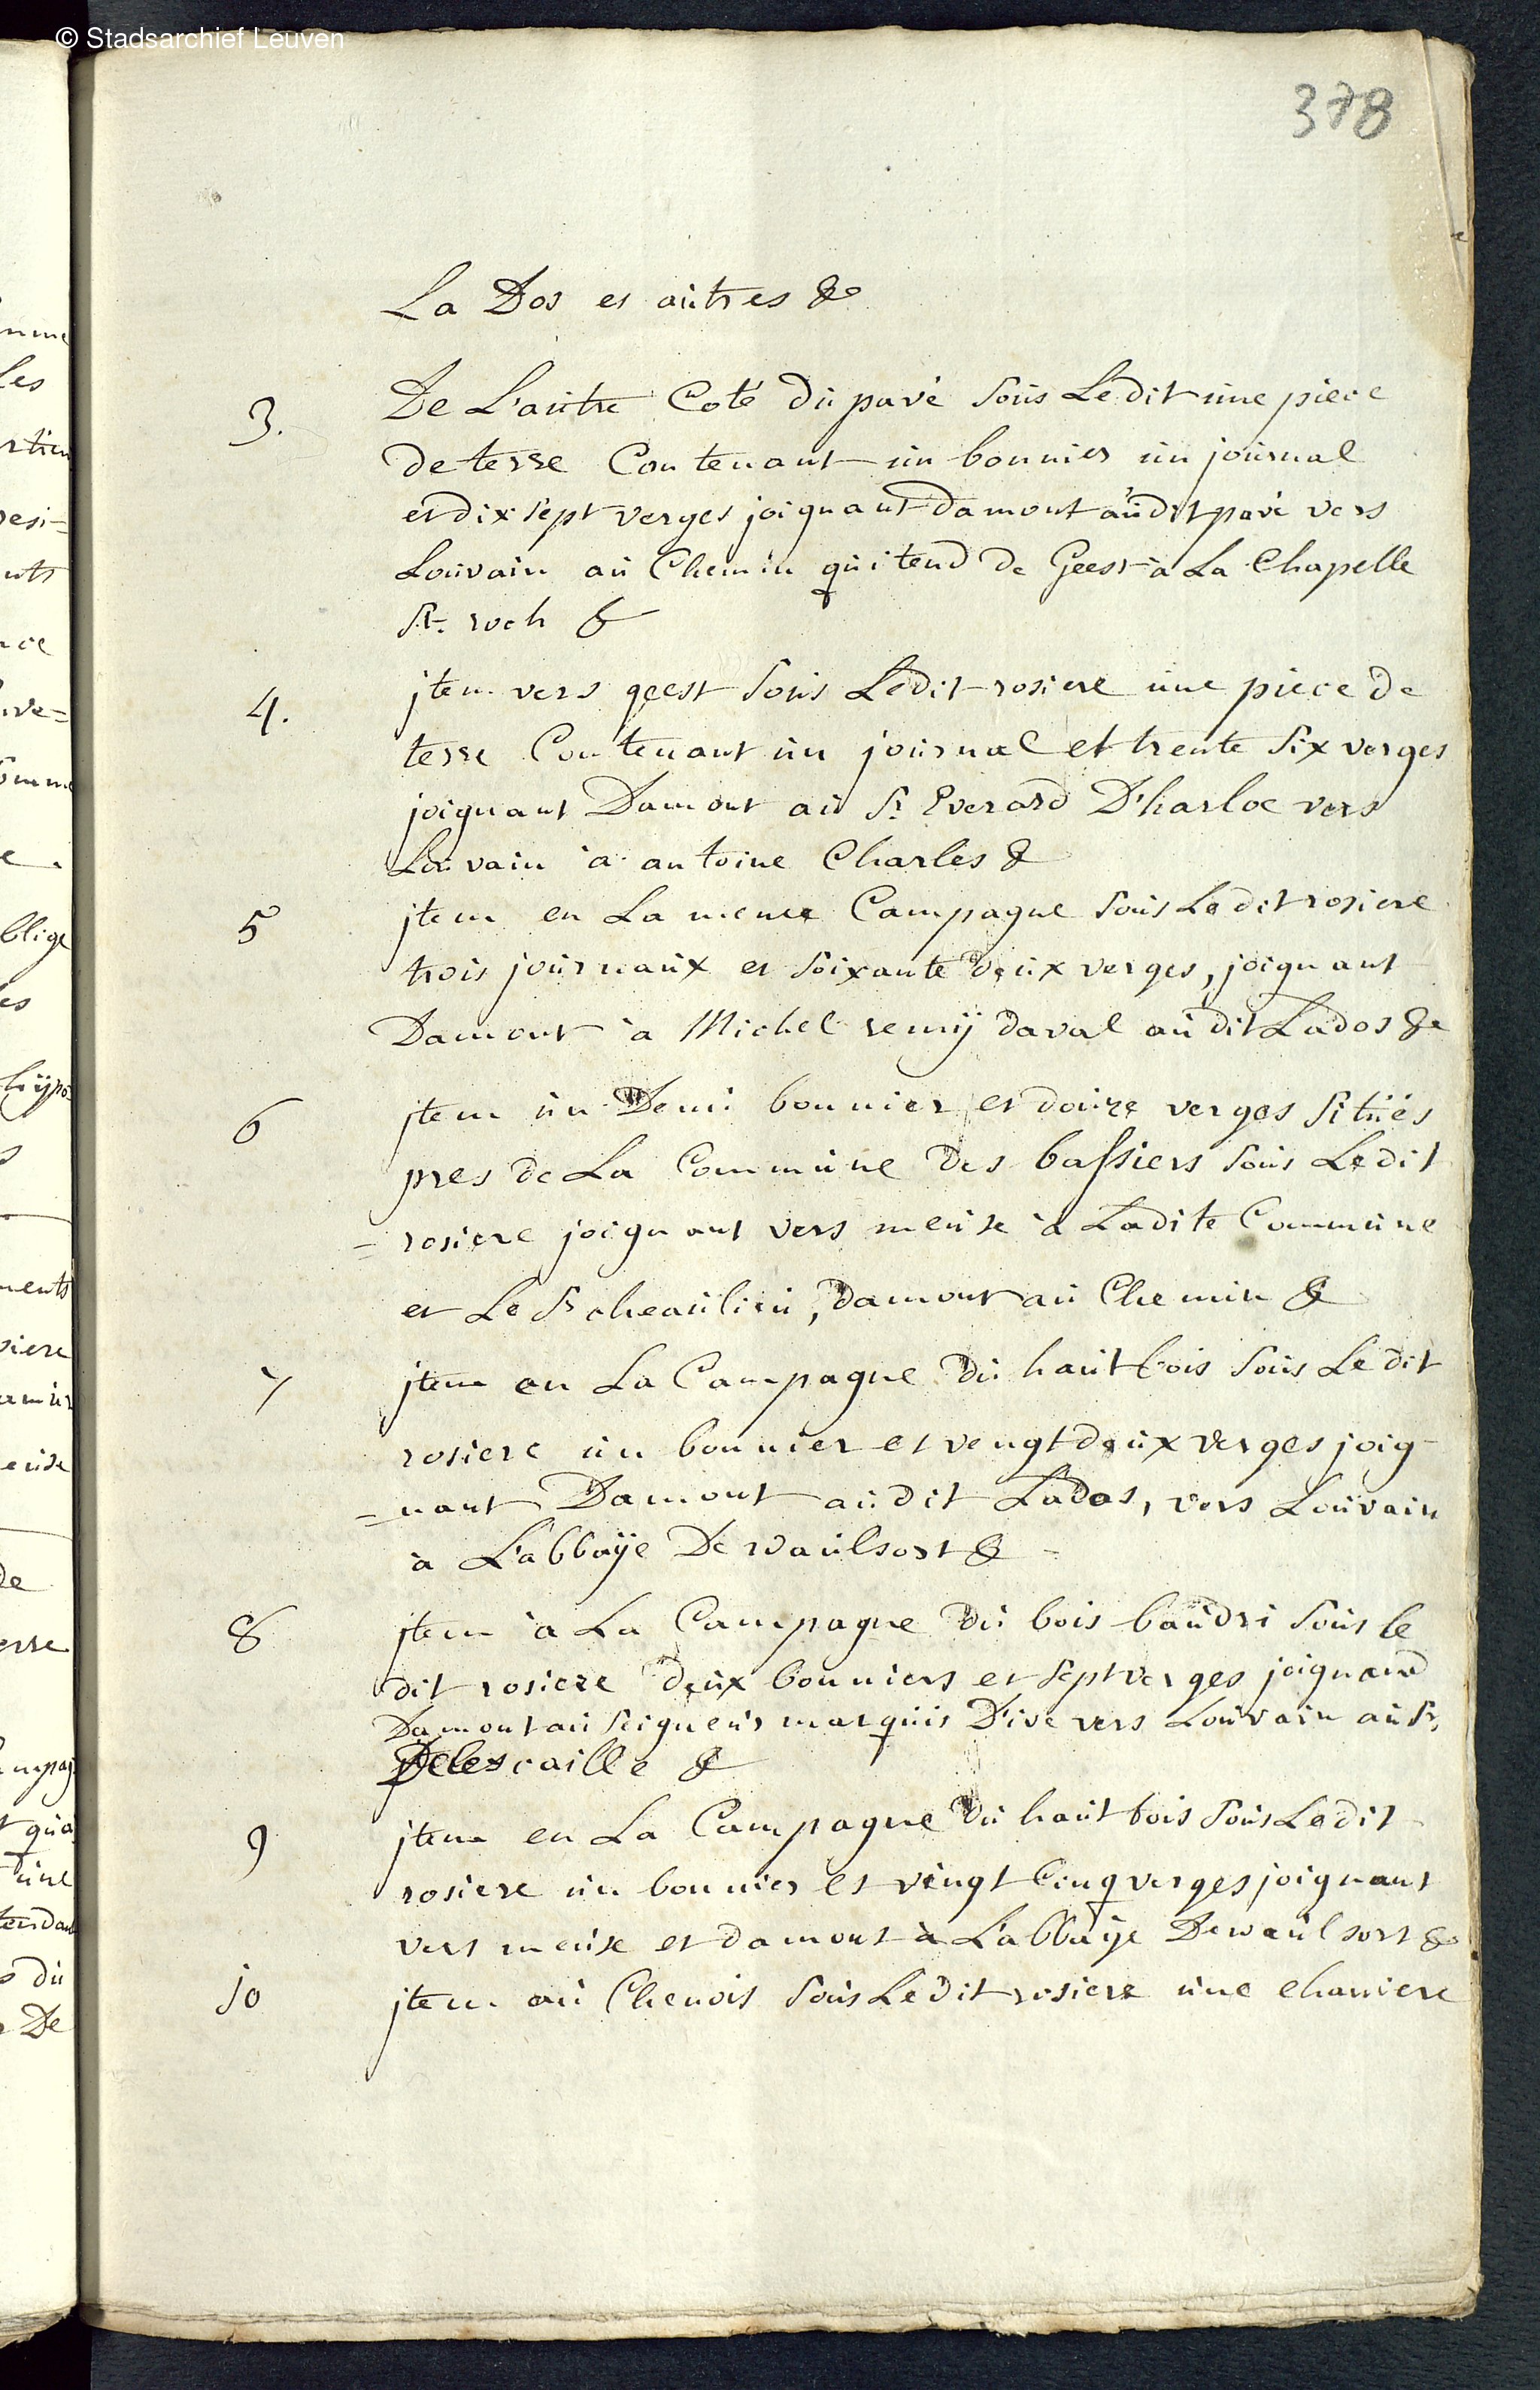 © Stadsarchief Leuven
378
La Dos et autres &
3. De L'autre Coté du pavé sous Ledit une piece
de terre Contenant un bonnier un journal
et dix sept verges joignant Damont audit pavé vers
Louvain au Chemin qui tend de Geest à La Chapelle
St. roch &
4. jtem vers geest sous Ledit rosiere une piece de
terre Contenant un journal et trente six verges
joignant Damont au Sr Everard D'harloe vers
Louvain à antoine Charles &
5 jtem en La meme Campagne sous Ledit rosiere
trois journaux et soixante deux verges, joignant
Damont à Michel remÿ daval au dit Lados &
6 jtem un Demi bonnier et douze verges situés
pres de La Commune des bassiers sous Ledit
= rosiere joignant vers meuse à Ladite Commune
et Le Sr cheaulieu, damont au Chemin &
7 jtem en La Campagne du haut bois sous Ledit
rosiere un bonnier et vengt deux verges joig
= nant Damont audit Lados, vers Louvain
à L'abbaÿe De waulsort &
8 jtem à La Campagne du bois baudri sous le
dit rosiere deux bonniers et sept verges joignand
Damont au seigneur marquis D'ive vers Louvain au Sr.
Delescaille &
9 jtem en La Campagne du haut bois sous Ledit
rosiere un bonnier et vingt Cinq verges joignant
vers meuse et damont à L'abbaÿe Dewaulsort &
10 jtem au Chenois sous Ledit rosiere une chaviere